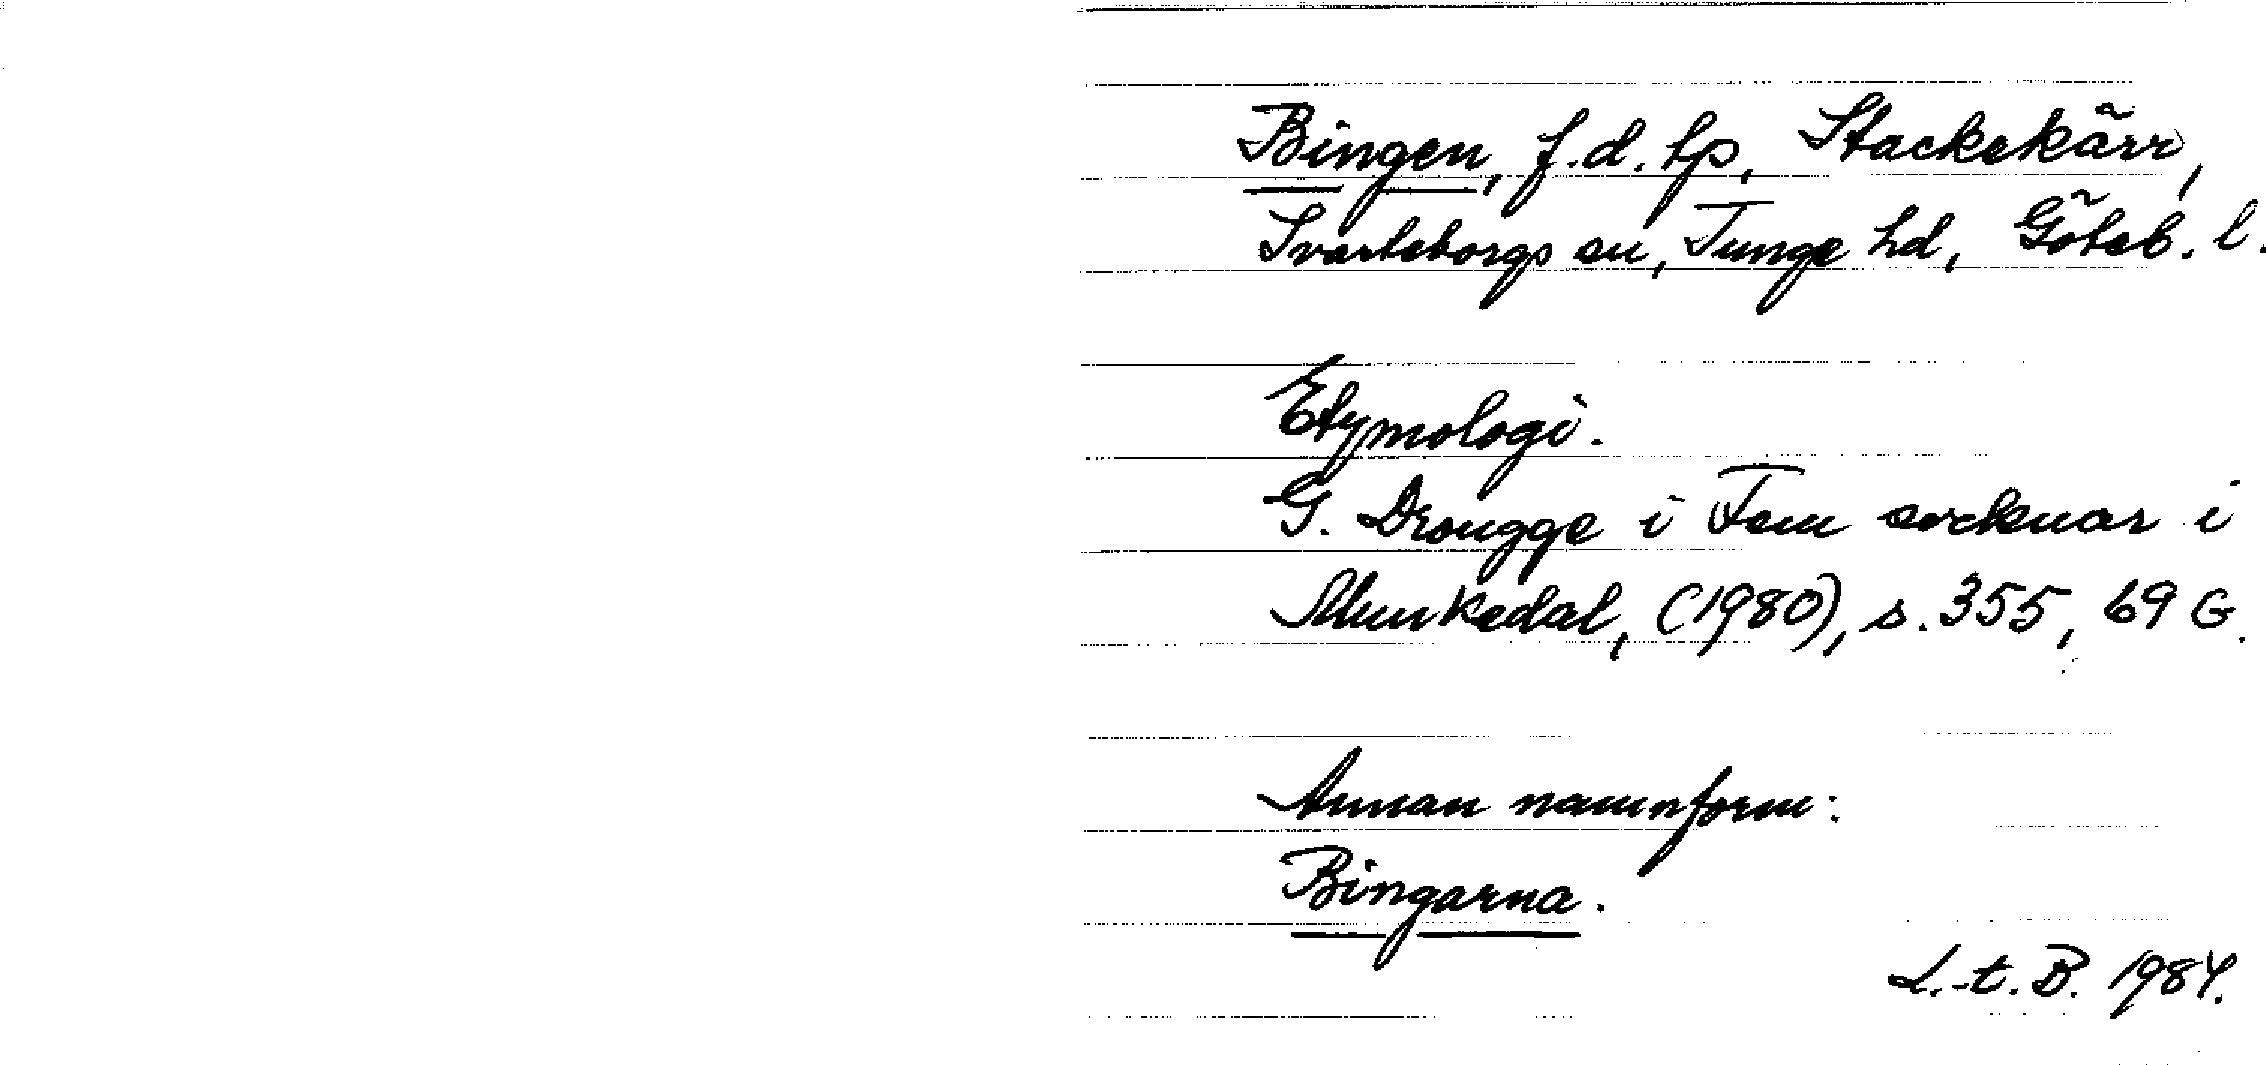 Bingen, f.d. tp, Stackekärr,
Svarteborgs sn, Tunge hd, Göteb. l.
Etymologi.
G. Drougge i Fem socknar i
Munkedal, (1980), s. 355, 69 G.
Annan namnform:
Bingarna.
L.-t. B. 1984.